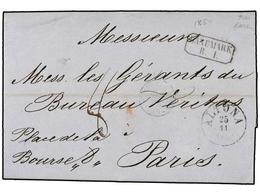 Messieurs
DANEMARK
R. 1.
Mess. les Gérants du
Bureau Veritas
ALTONA
25
11
Place de la
Bourse, 8,
Paris.